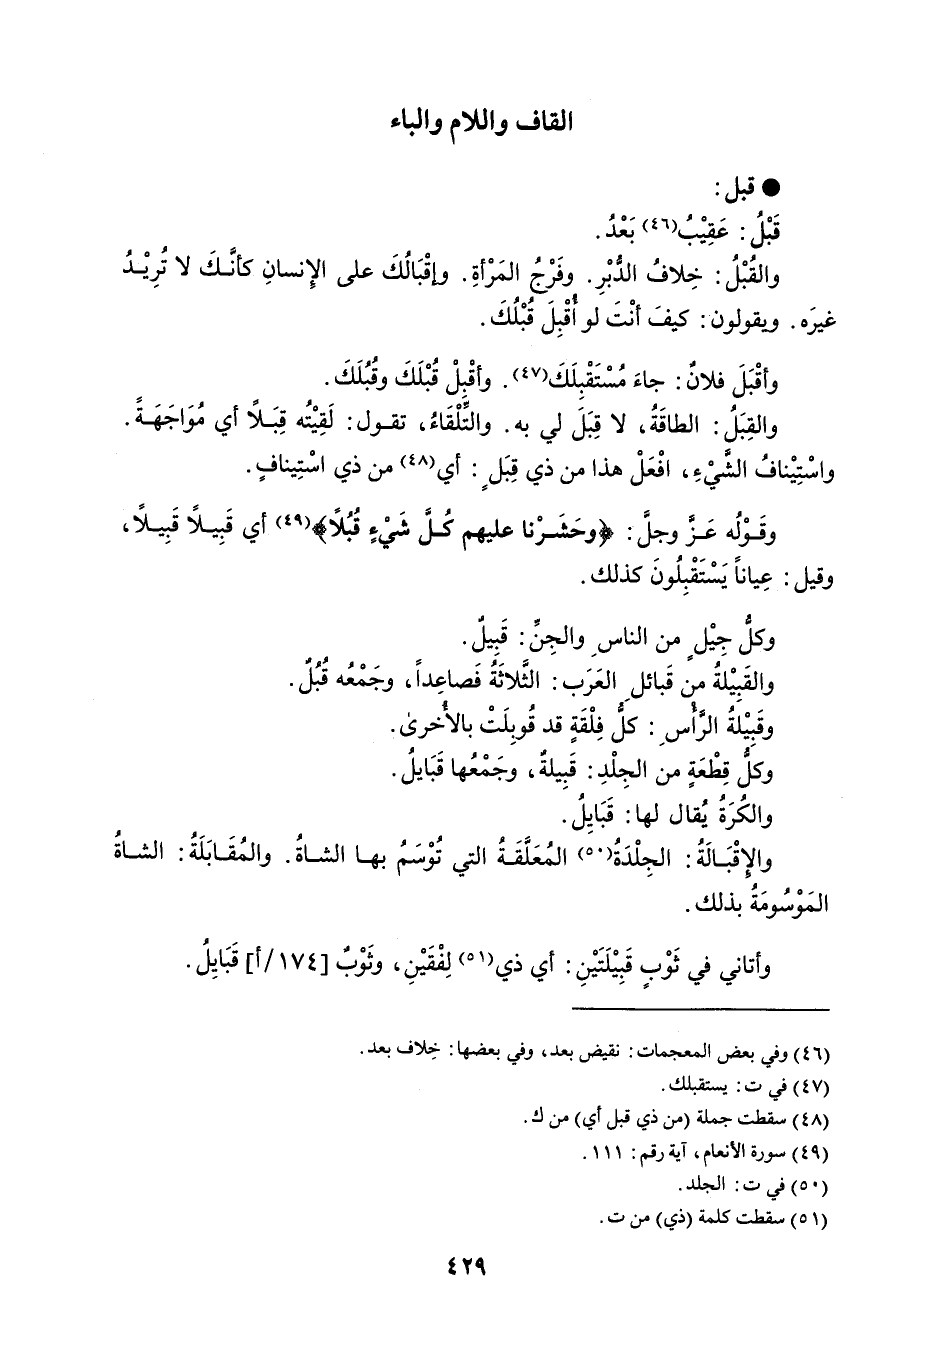 القاف واللام والباء
● قبل:
قَبْلُ: عَقِيْبُ(٤٦) بَعْدُ.
والقُبْلُ: خِلافُ الدُّبْرِ. وفَرْجُ المَرْأةِ. وإقْبَالُكَ على الإِنسانِ كأنَّكَ لا تُرِيْدُ
غيرَه. ويقولون: كيفَ أنْتَ لو أُقْبِلَ قُبْلُكَ.
وأقْبَلَ فلانٌ: جاءَ مُسْتَقْبِلَكَ(٤٧). وأقْبِلْ قُبْلَكَ وقُبُلَكَ.
والقِبَلُ: الطاقَةُ، لا قِبَلَ لي به. والتِّلْقَاءُ، تقول: لَقِيْتُه قِبَلاً أي مُوَاجَهَةً.
واسْتِيْنافُ الشَّيْءِ، افْعَلْ هذا من ذي قِبَلٍ: أي(٤٨) من ذي اسْتِينافٍ.
وقَوْلُه عَزَّ وجلَّ: ﴿وحَشَرْنا عليهم كُلَّ شَيْءٍ قُبُلًا﴾(٤٩) أي قَبِيلًا قَبِيلًا،
وقيل: عِياناً يَسْتَقْبِلُونَ كذلك.
وكلُّ جِيْلٍ من الناسِ والجِنِّ: قَبِيلٌ.
والقَبِيْلةُ من قبائلِ العَرَب: الثَّلاثَةُ فَصاعِداً، وجَمْعُه قُبُلٌ.
وقَبِيْلةُ الرَّأْسِ: كلُّ فِلْقَةٍ قد قُوبِلَتْ بالأُخرىٰ.
وكلُّ قِطْعَةٍ من الجِلْدِ: قَبِيلةٌ، وجَمْعُها قَبَايلُ.
والكُرَةُ يُقال لها: قَبَايِلُ.
والإِقْبَالَةُ: الجِلْدَةُ(٥٠) المُعَلَّقَةُ التي تُوْسَمُ بها الشاةُ. والمُقَابَلَةُ: الشاةُ
المَوْسُومَةُ بذلك.
وأتاني في ثَوْبٍ قَبِيْلَتَيْنِ: أي ذي(٥١) لِفْقَيْنِ، وثَوْبٌ [١٧٤/أ] قَبَايِلُ.
(٤٦) وفي بعض المعجمات: نقيض بعد، وفي بعضها: خِلاف بعد.
(٤٧) في ت: يستقبلك.
(٤٨) سقطت جملة (من ذي قبل أي) من ك.
(٤٩) سورة الأنعام، آية رقم: ١١١.
(٥٠) في ت: الجلد.
(٥١) سقطت كلمة (ذي) من ت.
٤٢٩